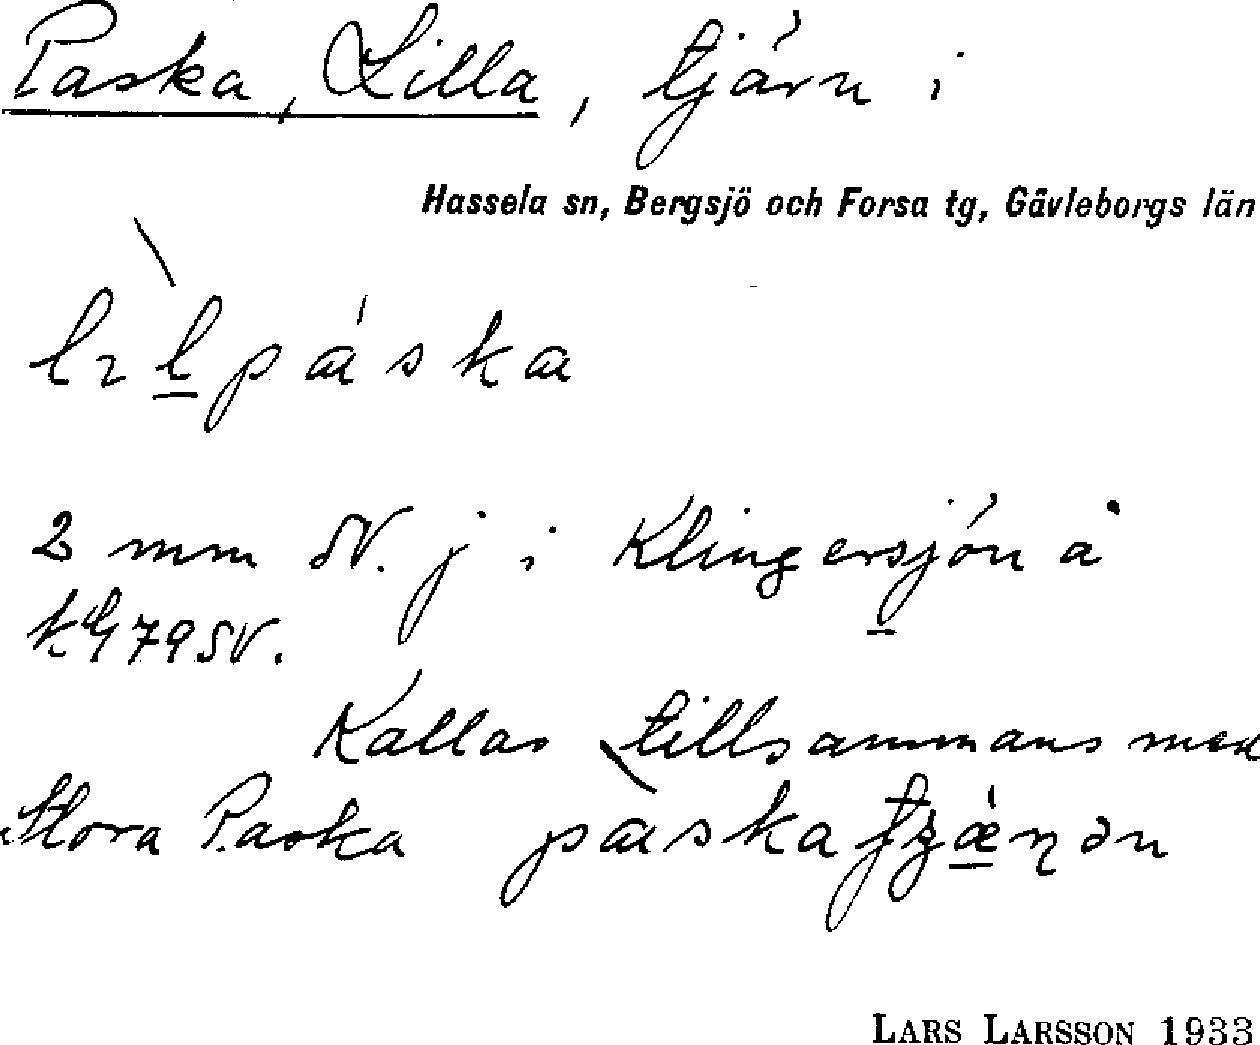 Paska, Lilla, tjärn i
Hassela sn, Bergsjö och Forsa tg, Gävleborgs län
2 mm SV. j i Klingersjön å
79 SV.
Kallas tillsammans med
Stora Paska
LARS LARSSON 1933